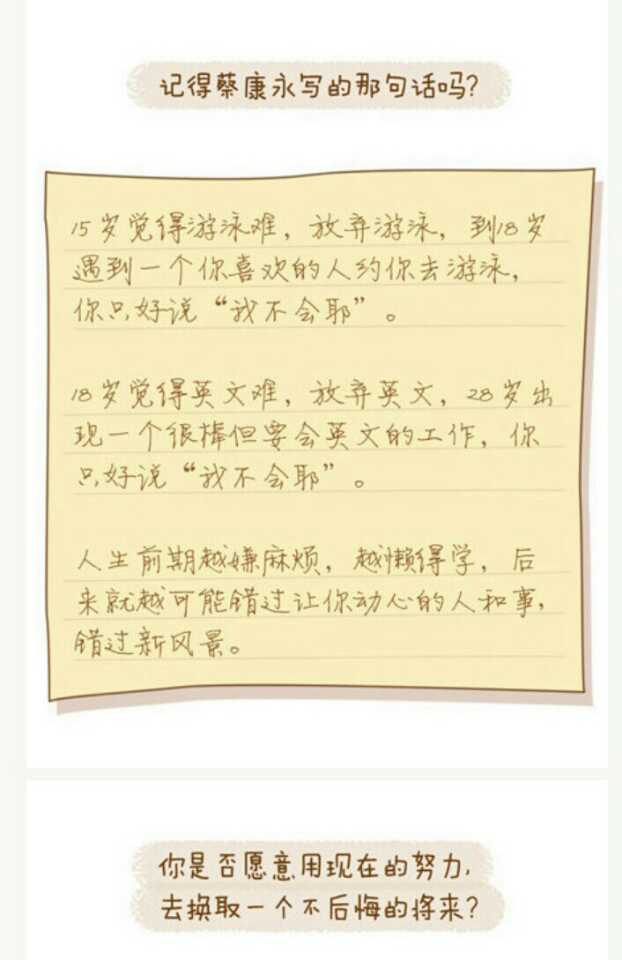 记得蔡康永写的那句话吗？
15岁觉得游泳难，放弃游泳，到18岁
遇到一个你喜欢的人约你去游泳，
你只好说“我不会耶”。
18岁觉得英文难，放弃英文，28岁出
现一个很棒但要会英文的工作，你
只好说“我不会耶”。
人生前期越嫌麻烦，越懒得学，后
来就越可能错过让你动心的人和事，
错过新风景。
你是否愿意用现在的努力，
去换取一个不后悔的将来？